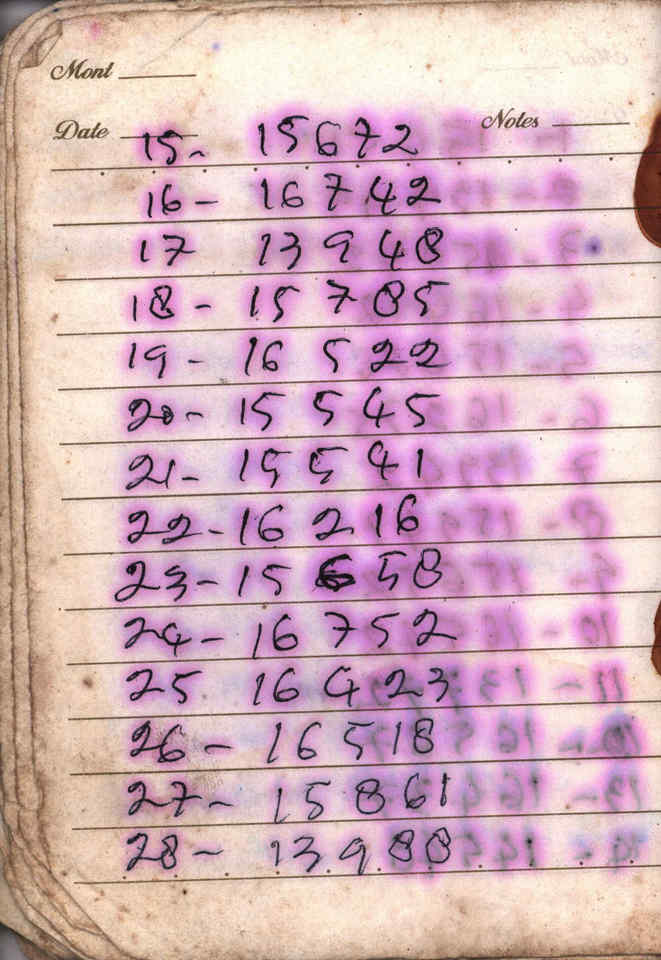 Mont
Date Notes
15- 15672
16- 16742
17 13948
18- 15785
19- 16522
20- 15545
21- 15541
22-16216
23-15658
24-16752
25 16423
26- 16518
27- 15861
28- 13988